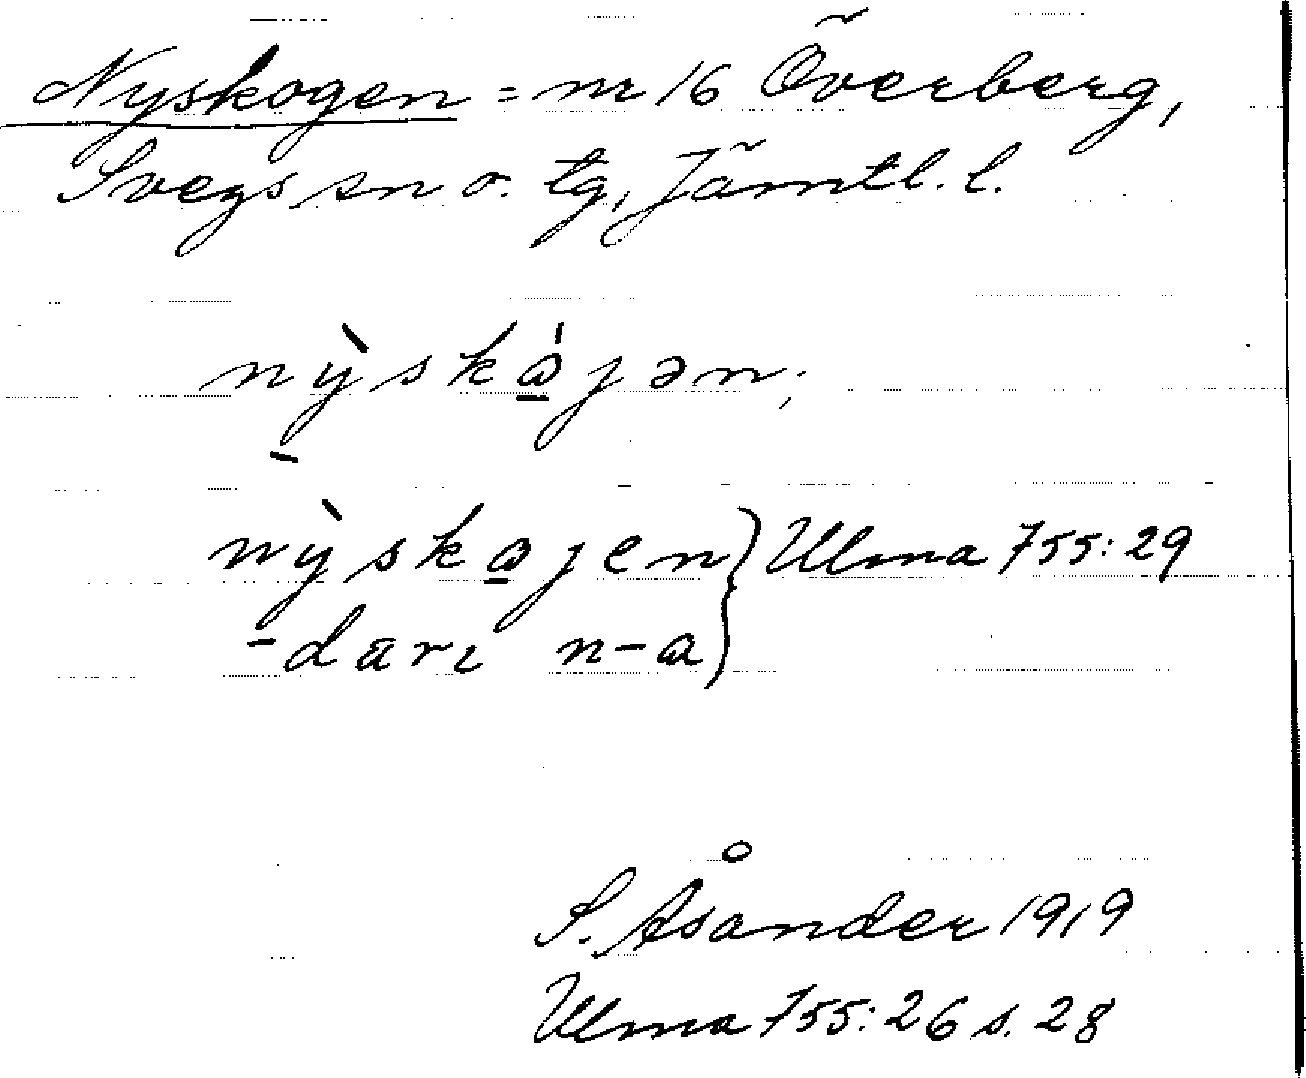 Nyskogen = nr 16 Överberg,
Svegs sn o. tg, Jämtl. l.
nỳskȧ̱jən;
nỳska̱jen } Ulma 755:29
-dārɩ n-a
S. Åsander 1919
Ulma 755:26 s. 28